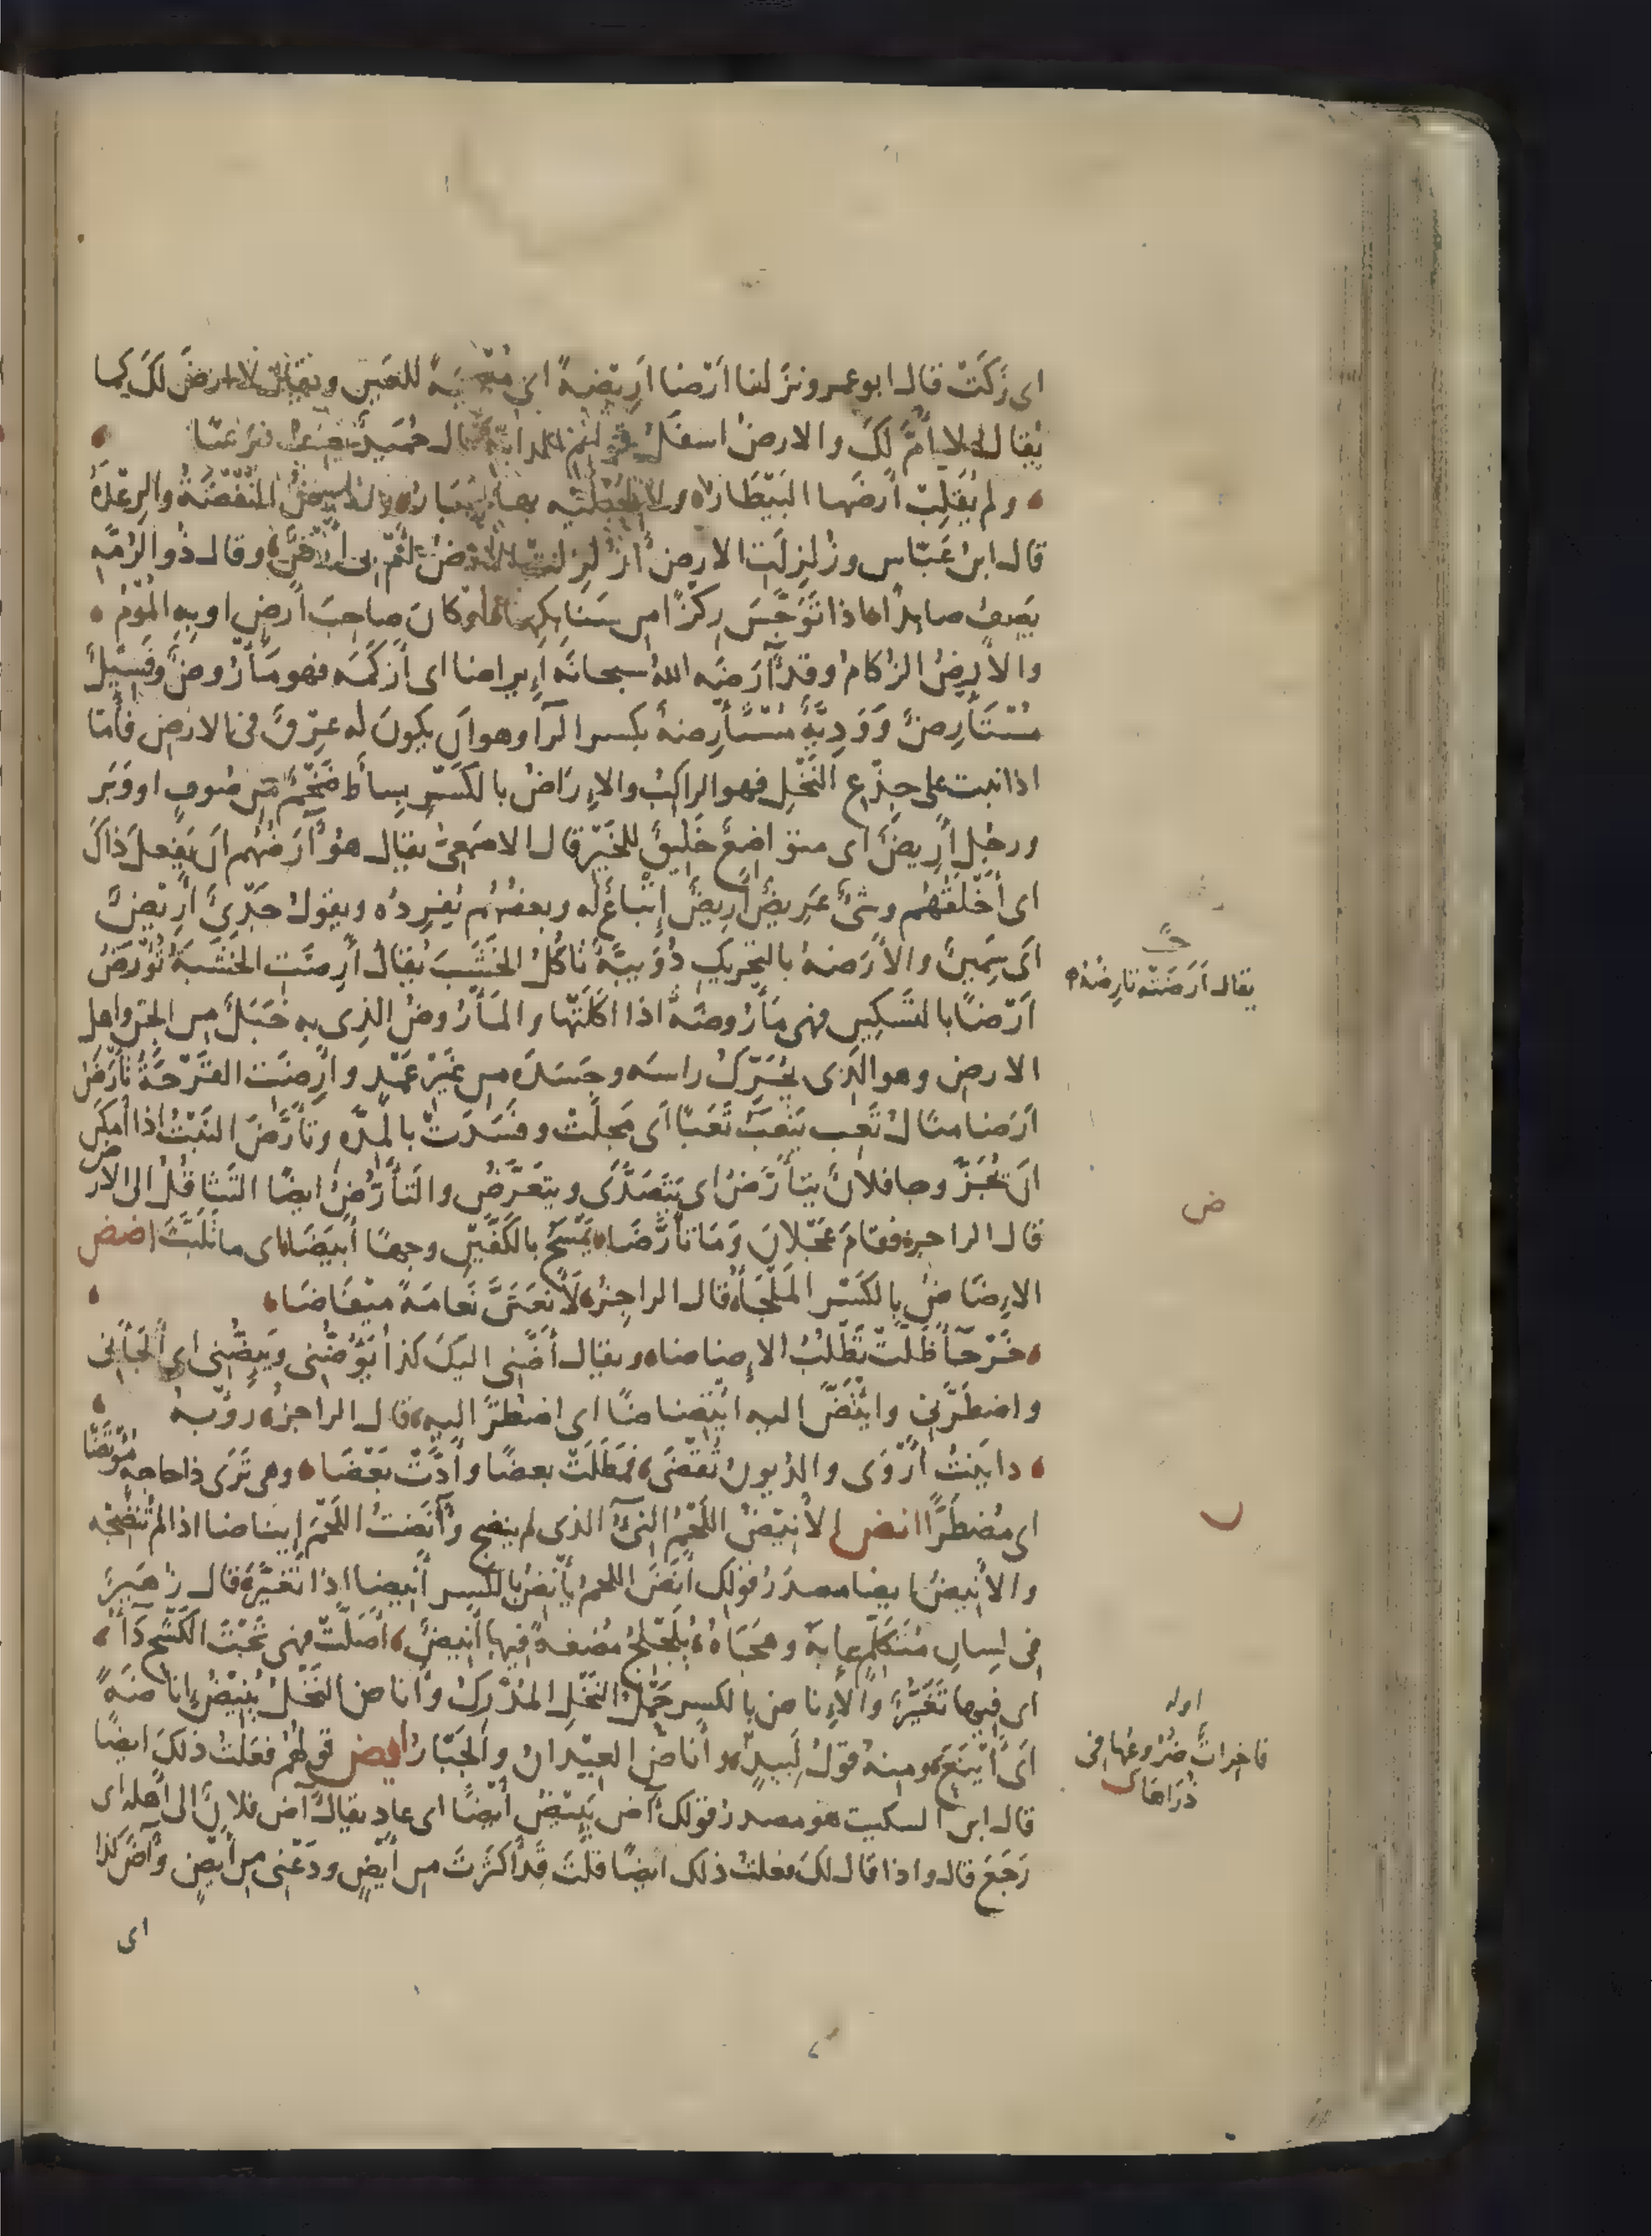 اى زَكَتْ قال ابو عمرو نزلنا اَرْضا اَرِيْضةً اى مُعْجِبَةً للعَين ويقال لا ارضَ لكَ كما
يُقال لا اُمَّ لكَ والارضُ اسفَلُ قوائم الدابّة قال حُمَيدٌ يَصفُ فرسًا
ولم يُقَلِّبْ اَرْضَها البَيْطَارُ ولا لِحَبْلَيْه بها حَبَارُ والارضُ النَّفْضَةُ والرِعْدَةُ
قال ابنُ عَبّاس وزُلزِلَتِ الارضُ أَزُلزِلَت الارضُ أَمْ بى اَرْضٌ وقال ذُو الرُمّه
يَصِفُ صائِدًا اذا تَوَجَّسَ رِكْزًا من سَنَابِكِها او كانَ صاحِبَ اَرْضٍ او بِهِ المُوْمُ
والاَرْضُ الزُكامُ وقد آرَضَه اللهُ سبحانَه اِيراضا اى اَزكَمَه فهو مَأْرُوضٌ وفَسِيْلٌ
مُسْتَأْرِضٌ وَوَدِيَّةٌ مُسْتَأْرِضةٌ بكسر الرآ وهو اَن يكونَ له عِرْقٌ فى الارض فأمّا
اذا نبت على جِذْعِ النَّخْلِ فهو الراكِبُ والاِرَاضُ بالكَسْرِ بِساطٌ ضَخْمٌ مِن صُوفٍ او وَبَر
ورجُل اَرِيضٌ اى متواضِعٌ خَلِيقٌ للخَيْر قال الاصمَعِىُّ يقال هوُ آرَضُهُم اَن يَفعلَ ذاكَ
اى اَخْلَقُهُم وشَىْءٌ عَرِيضٌ اَرِيضٌ اِتْباعٌ له وبعضُهُم يُفرِدُه ويقولُ جَدْىٌ اَرِيْضٌ
اَى سَمِينٌ والاَرَضةُ بالتحريكِ دُوَيبَّةٌ تَأكُلُ الخَشَبَ يُقالُ اُرِضَتِ الخَشَبَةُ تُؤْرَضُ
يقال اَرَضَتْه تارِضُه
اَرْضًا بالتَسكِين فهى مَأْرُوضَةٌ اذا اكَلَتْها والمَأْرُوضُ الذى به خَبَلٌ مِن الجنّ واهل
الارض وهو الّذى يُحَرِّكُ راسَه وجَسَدَه مِن غَيْرِ عَمْدٍ واَرِضَت القَرْحَةُ تَأْرَضُ
اَرَضا مثالُ تَعِب يَتْعَبُ تَعَبًا اَى مَجِلَتْ وفَسَدَتْ بالمِدّه وتَأَرَّضَ النَبْتُ اذا اَمكَنَ
اَن يُجَزَّ وجا فلانٌ يتأرَّضُ اى يتَصَدَّى ويتعَرَّضُ والتَأَرُّضُ ايضًا التَثاقُلُ الى الارض
قال الراجز فقامَ عَجْلانَ وَمَا تأرَّضَا يَمْسَحُ بالكَفَّيْنِ وجهًا أبيَضَا اى ما تَلَبَّثَ اضض
الاِضَاضُ بالكَسْر المَلْجَأُ قال الراجِزُ لَأَنعَتَنَّ نَعامَةً مِيْفَاضَا
خَرْجَآءَ ظَلَّتْ تَطْلُبُ الاِضاضا ويقال اَضَّنِى اليكَ كذا يَؤُضُّنِى ويَئِضُّنِى اى اَلجَأَنِى
واضطَرَّنِى وائْتَضَّ اليه ائْتِضاضًا اى اضطَرَّ اليهِ قال الراجزُ رؤبةُ
دايَنْتُ اَرْوَى والدُيونُ تُقْضَى فمَطَلَتْ بعضًا وأَدَّتْ بَعْضَا وهى تَرَى ذا حاجه مُؤْتَضَّا
اى مُضطَرًّا انض الاَنِيْضُ اللَحْمُ النِىْءُ الذى لم ينضَج وآنَضتُ اللَحْمَ اِيناضا اذا لم تُنضِجْه
والاَنِيضُ ايضا مصدَرُ قولِكَ اَنَضَ اللحمُ يأنِضُ بالكسر اَنِيضا اذا تَغيَّرَ قال زُهَيرٌ
فى لِسانِ مُتكَلِّمٍ عابَهُ وهجَاهُ يُلَجْلِجُ مُضغَةً فيها اَنِيضٌ اَصَلَّتْ فهى تَحْتَ الكَشْحِ دَآءُ
اى فيها تَغَيُّرٌ والاِناضُ بالكسر حَمْلُ النَخْلِ المُدْرِكُ واَناضَ النَخْلُ يُنِيْضُ اِناضَةً
اَى اَيْنَعَ ومنه قولُ لَبِيدٍ واَناضَ العِيْدَانُ والجَبّارُ ايض قولُهُم فعَلتُ ذلكَ ايضًا
اوله
فاخِراتٌ ضُرُوعُها فى ذُرَاها
قال ابن السكيت هو مصدرُ قولِكَ آضَ يَئِيْضُ اَيْضًا اى عاد يقال آضَ فلانٌ الى اَهله اى
رَجَعَ قال واذا قال لكَ فعلتُ ذلكَ ايضًا قلتَ قد اَكثَرْتَ من اَيْضٍ ودَعْنِى مِن اَيْضٍ وآضَ كذا
اى